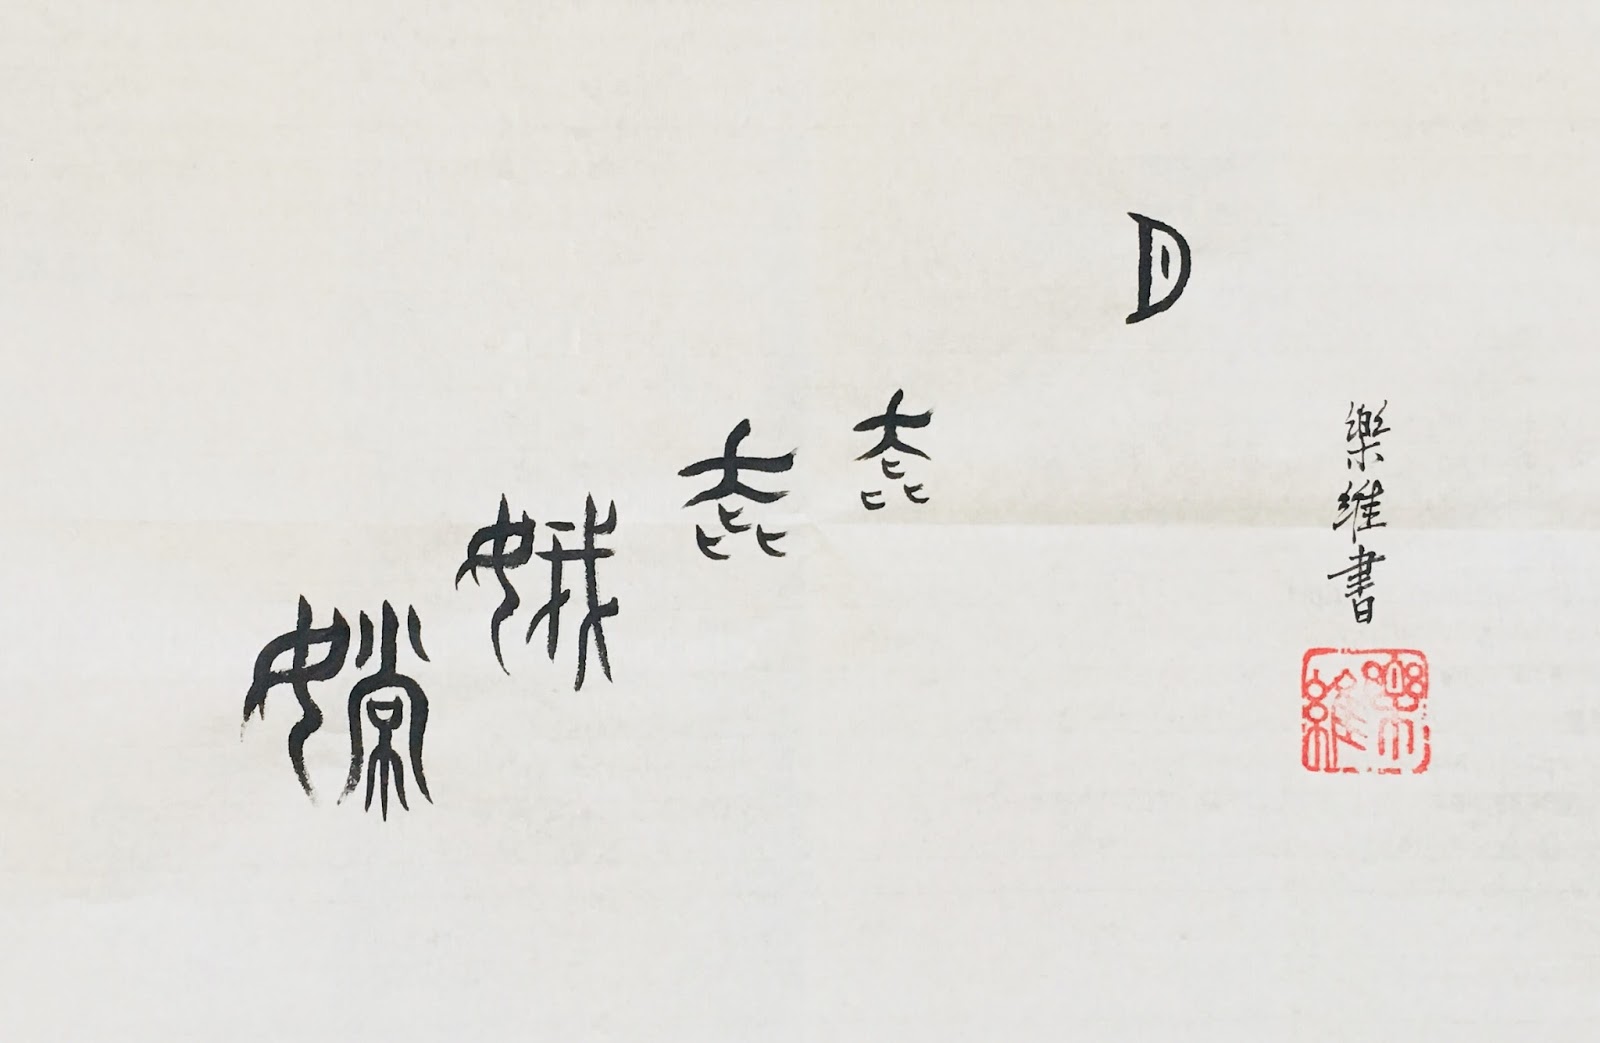 嫦娥奔奔月
樂維書
樂維